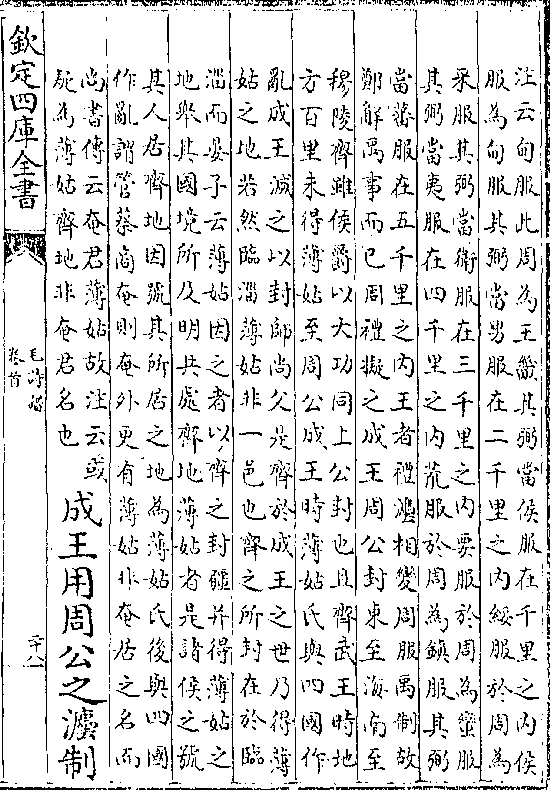 注云甸服此周為王畿其弼當侯服在千里之内侯
服為甸服其弼當男服在二千里之内綏服於周為
采服其弼當衛服在三千里之内要服於周為蠻服
其弼當夷服在四千里之内荒服於周為鎮服其弼
當蕃服在五千里之内王者禮隨相變周服禹制故
鄭解禹事而已周禮擬之成王周公封東至海南至
穆陵齊雖侯爵以大功同上公封也且齊武王時地
方百里未得薄姑至周公成王時薄姑氏與四國作
亂成王滅之以封師尚父是齊於成王之世乃得薄
姑之地若然臨淄薄姑非一邑也齊之所封在於臨
淄而晏子云薄姑因之者以齊之封疆并得薄姑之
地舉其國境所及明共處齊地薄姑者是諸侯之號
其人居齊地因號其所居之地為薄姑氏後與四國
作亂謂管蔡商奄則奄外更有薄姑非奄居之名而
尚書傳云奄君薄姑故注云或
疑為薄姑齊地非奄君名也
成王用周公之灋制
欽定四庫全書
毛詩譜
卷首
二十八